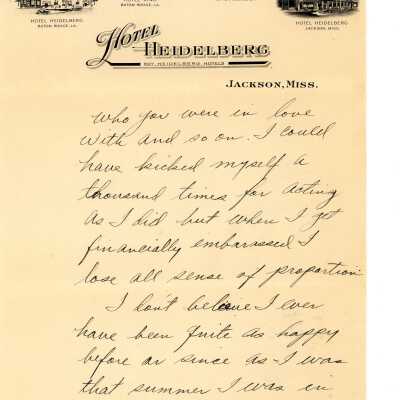 HOTEL HEIDELBERG
BATON ROUGE, LA.
BATON ROUGE, LA.
HOTEL HEIDELBERG
JACKSON, MISS.
HOTEL
HEIDELBERG
HEIDELBERG HOTELS
JACKSON, MISS.
who you were in love
with and so on. I could
have kicked myself a
thousand times for acting
as I did but when I get
financially embarassed I
lose all sense of proportion.
I don't believe I ever
have been quite as happy
before or since as I was
that summer I was in